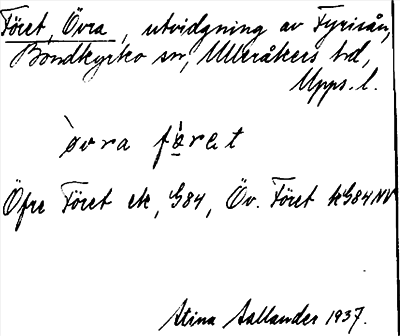 Föret, Övra, utvidgning av Fyrisån,
Bondkyrko sn, Ulleråkers hd,
Upps. l.
ò̀vra fö̀ret
Öfre Föret ek, G84, Öv. Föret k G84 NV
Stina Aallander 1937.